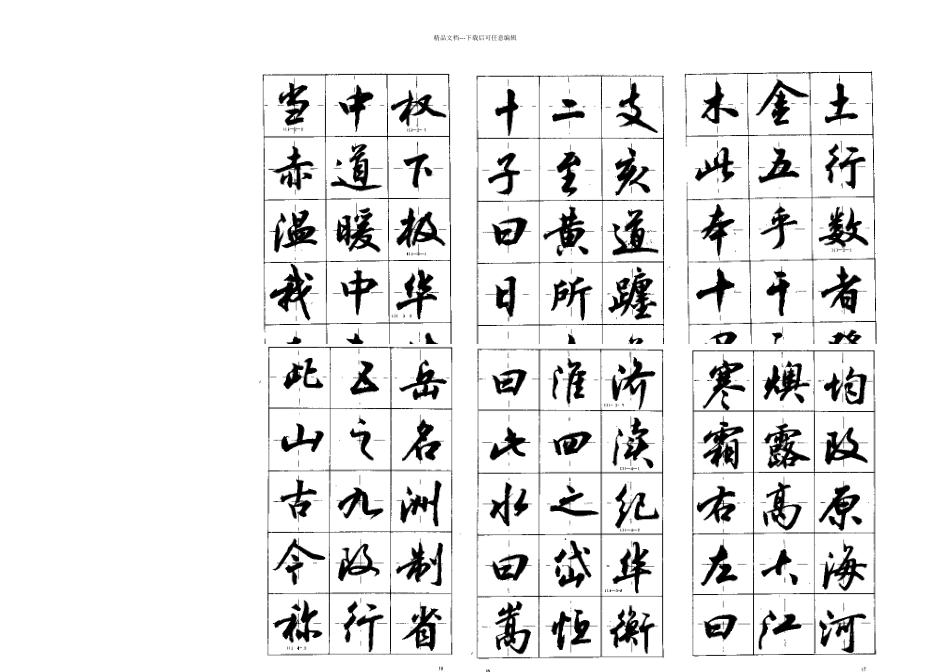 精品文档---下载后可任意编辑
当中权
赤道下
温暖极
我中华
十二支
子至亥
曰黄道
日所躔
木金土
此五行
本乎数
十干者
此五岳
山之名
古九洲
今改制
称行省
曰淮济
此四渎
水之纪
曰岱华
嵩恒衡
寒燠均
霜露改
右高原
左大海
曰江河